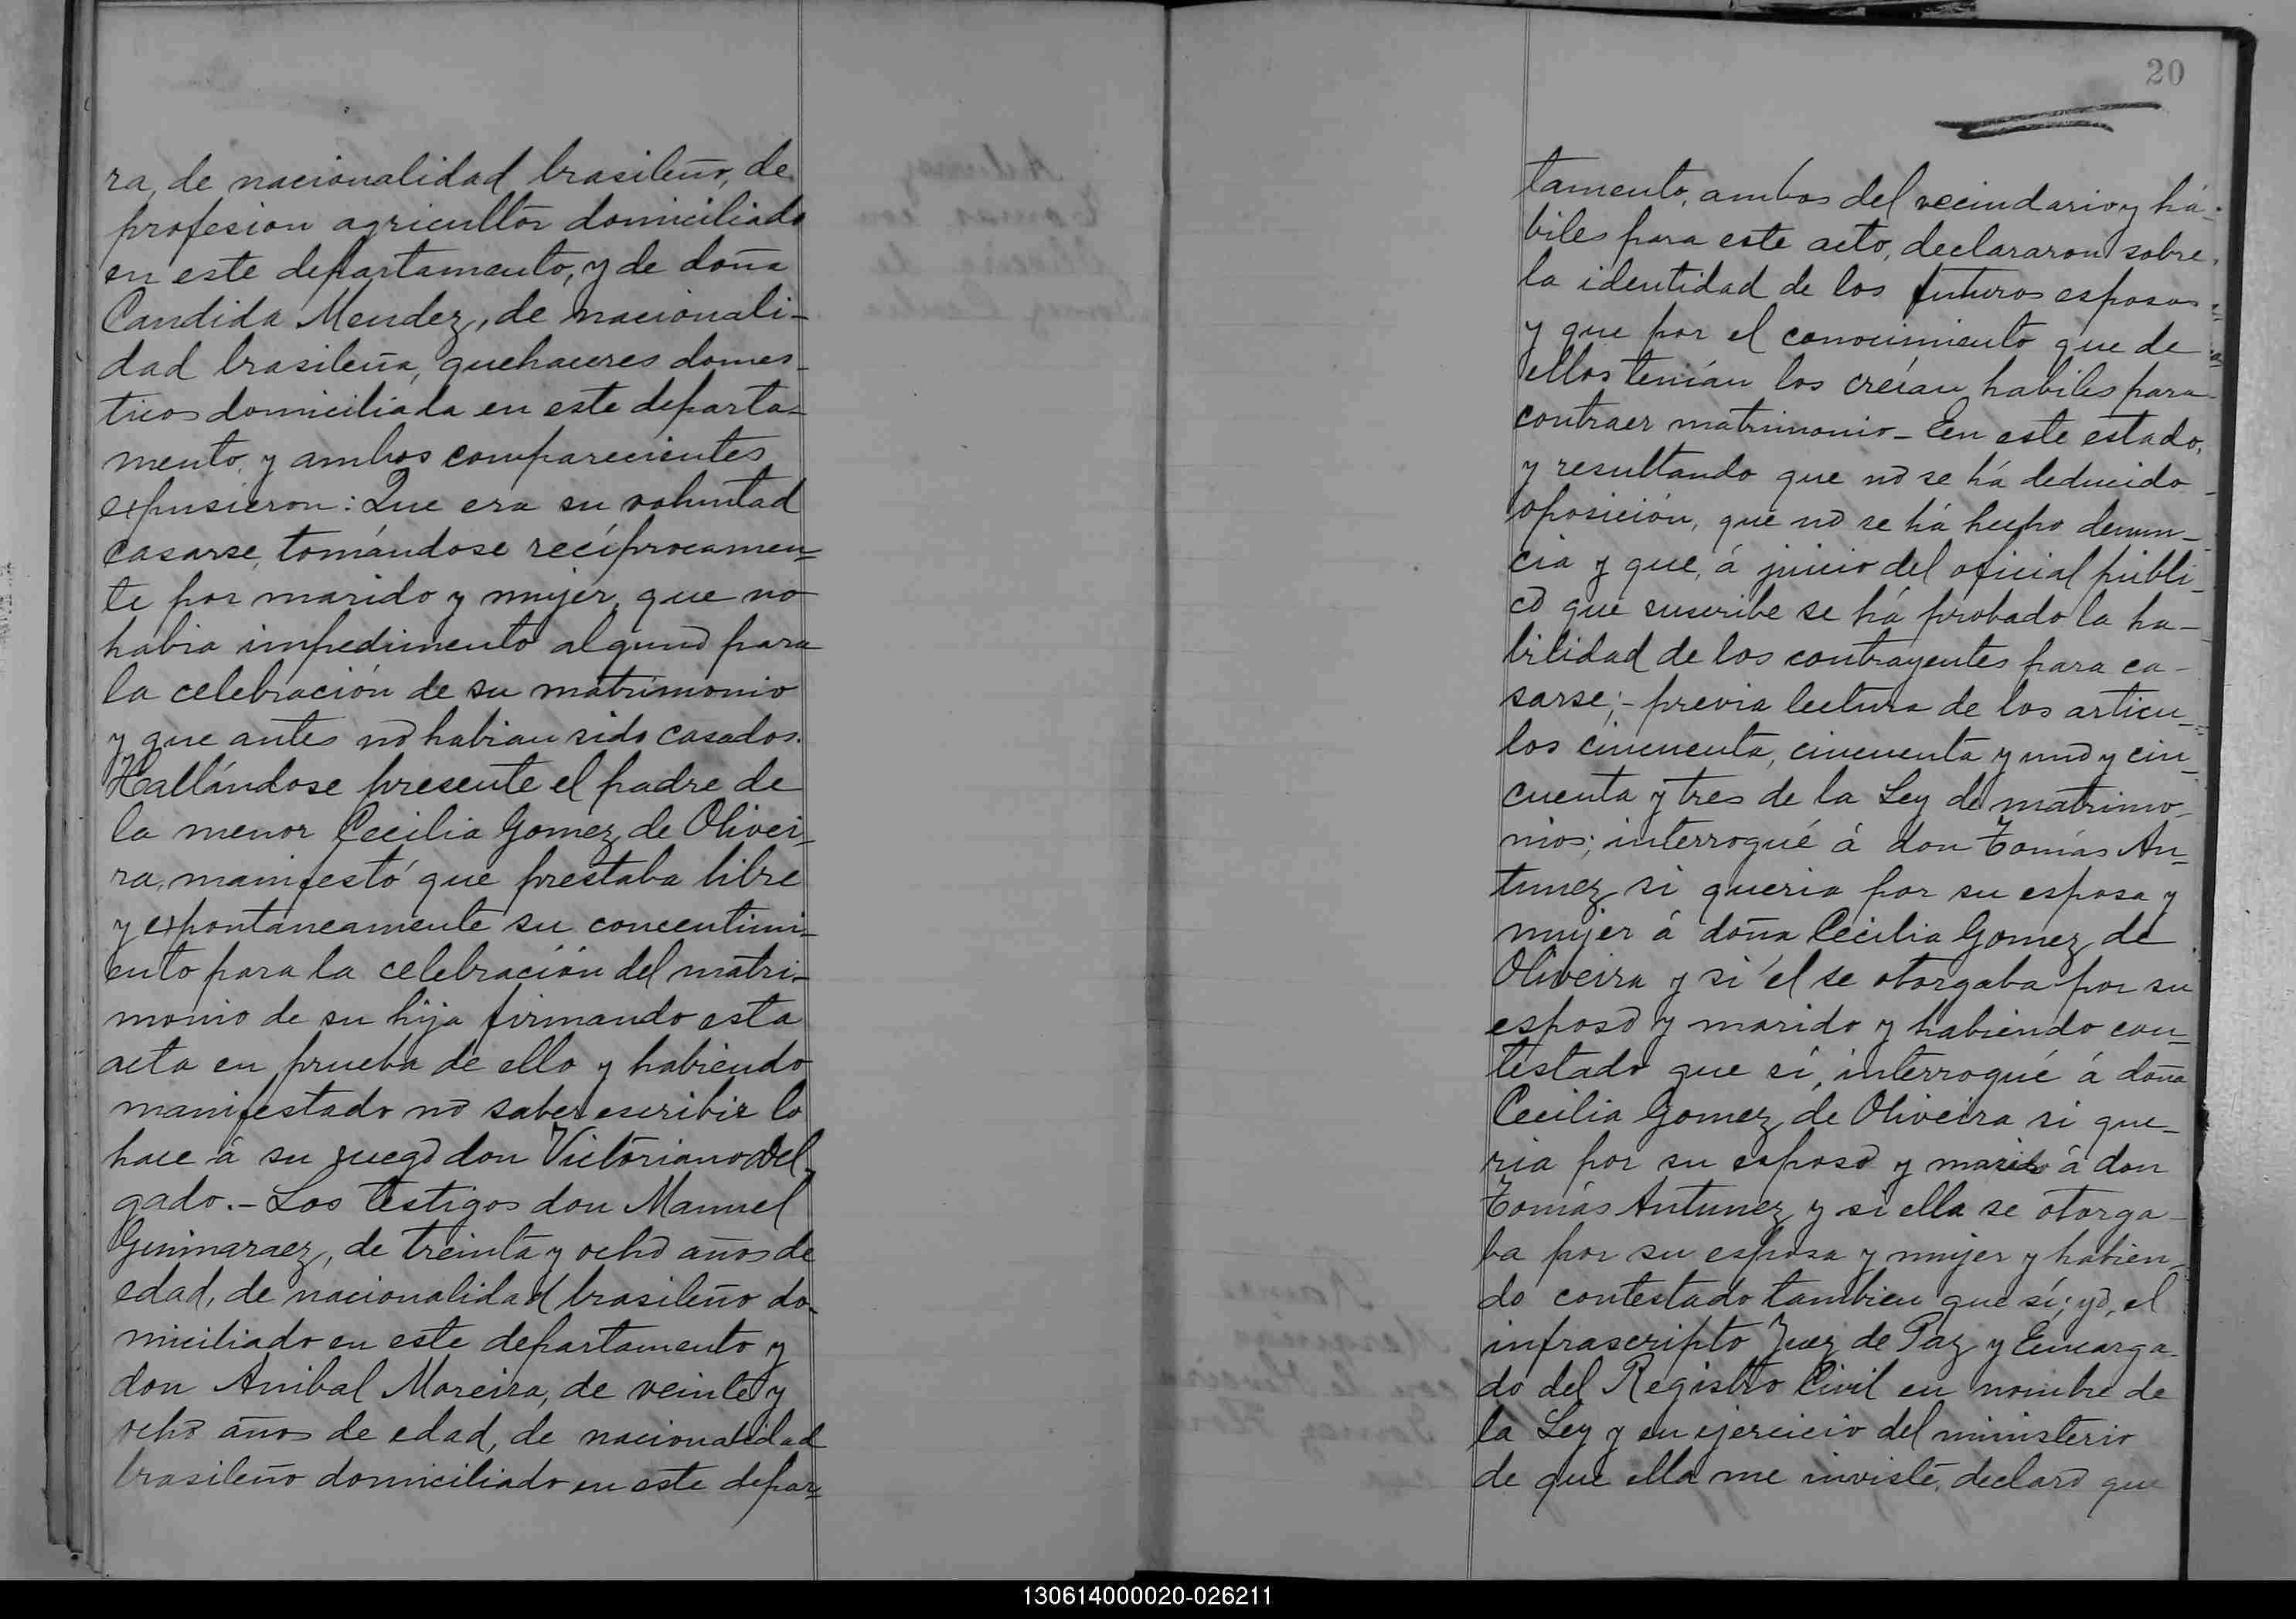 ra, de nacionalidad brasileño, de
profesion agricultor domiciliado
en este departamento, y de doña
Candida Mendez, de nacionali-
dad brasileña, quehaceres domes-
ticos domiciliada en este departa-
mento, y ambos comparecientes
expusieron: Que era su voluntad
casarse, tomándose recíprocamen=
te por marido y mujer, que no
habia impedimento alguno para
la celebración de su matrimonio
y que antes no habian sido casados.
Hallándose presente el padre de
la menor Cecilia Gomez de Olivei-
ra, manifestó que prestaba libre
y expontaneamente su concentimi-
ento para la celebración del matri-
monio de su hija firmando esta
acta en prueba de ello y habiendo
manifestado no saber escribir lo
hace á su ruego don Victoriano Del-
gado.- Los testigos don Manuel
Guimaraez, de treinta y ocho años de
edad, de nacionalidad brasileño do-
miciliado en este departamento y
don Anibal Moreira, de veinte y
ocho años de edad, de nacionalidad
brasileño domiciliado en este depar=
20
tamento, ambos del vecindario y há-
biles para este acto, declararon sobre
la identidad de los futuros esposos
y que por el conocimiento que de
ellos tenían los creían habiles para
contraer matrimonio - En este estado,
y resultando que no se há deducido
oposición, que no se há hecho denun-
cia y que, á juicio del oficial públi-
co que suscribe se há probado la ha-
bilidad de los contrayentes para ca-
sarse;- previa lectura de los articu-
los cincuenta, cincuenta y uno y cin-
cuenta y tres de la Ley de matrimo-
nios; interrogué á don Tomás An-
tunez si queria por su esposa y
mujer á doña Cecilia Gomez de
Oliveira y si él se otorgaba por su
esposo y marido y habiendo con-
testado que sí, interrogué á doña
Cecilia Gomez de Oliveira si que-
ria por su esposo y marido á don
Tomás Antunez y si ella se otorga-
ba por su esposa y mujer y habien-
do contestado tambien que sí; yo, el
infrascripto Juez de Paz y Encarga-
do del Registro Civil en nombre de
la Ley y en ejercicio del ministerio
de que ella me inviste, declaro que
130614000020-026211